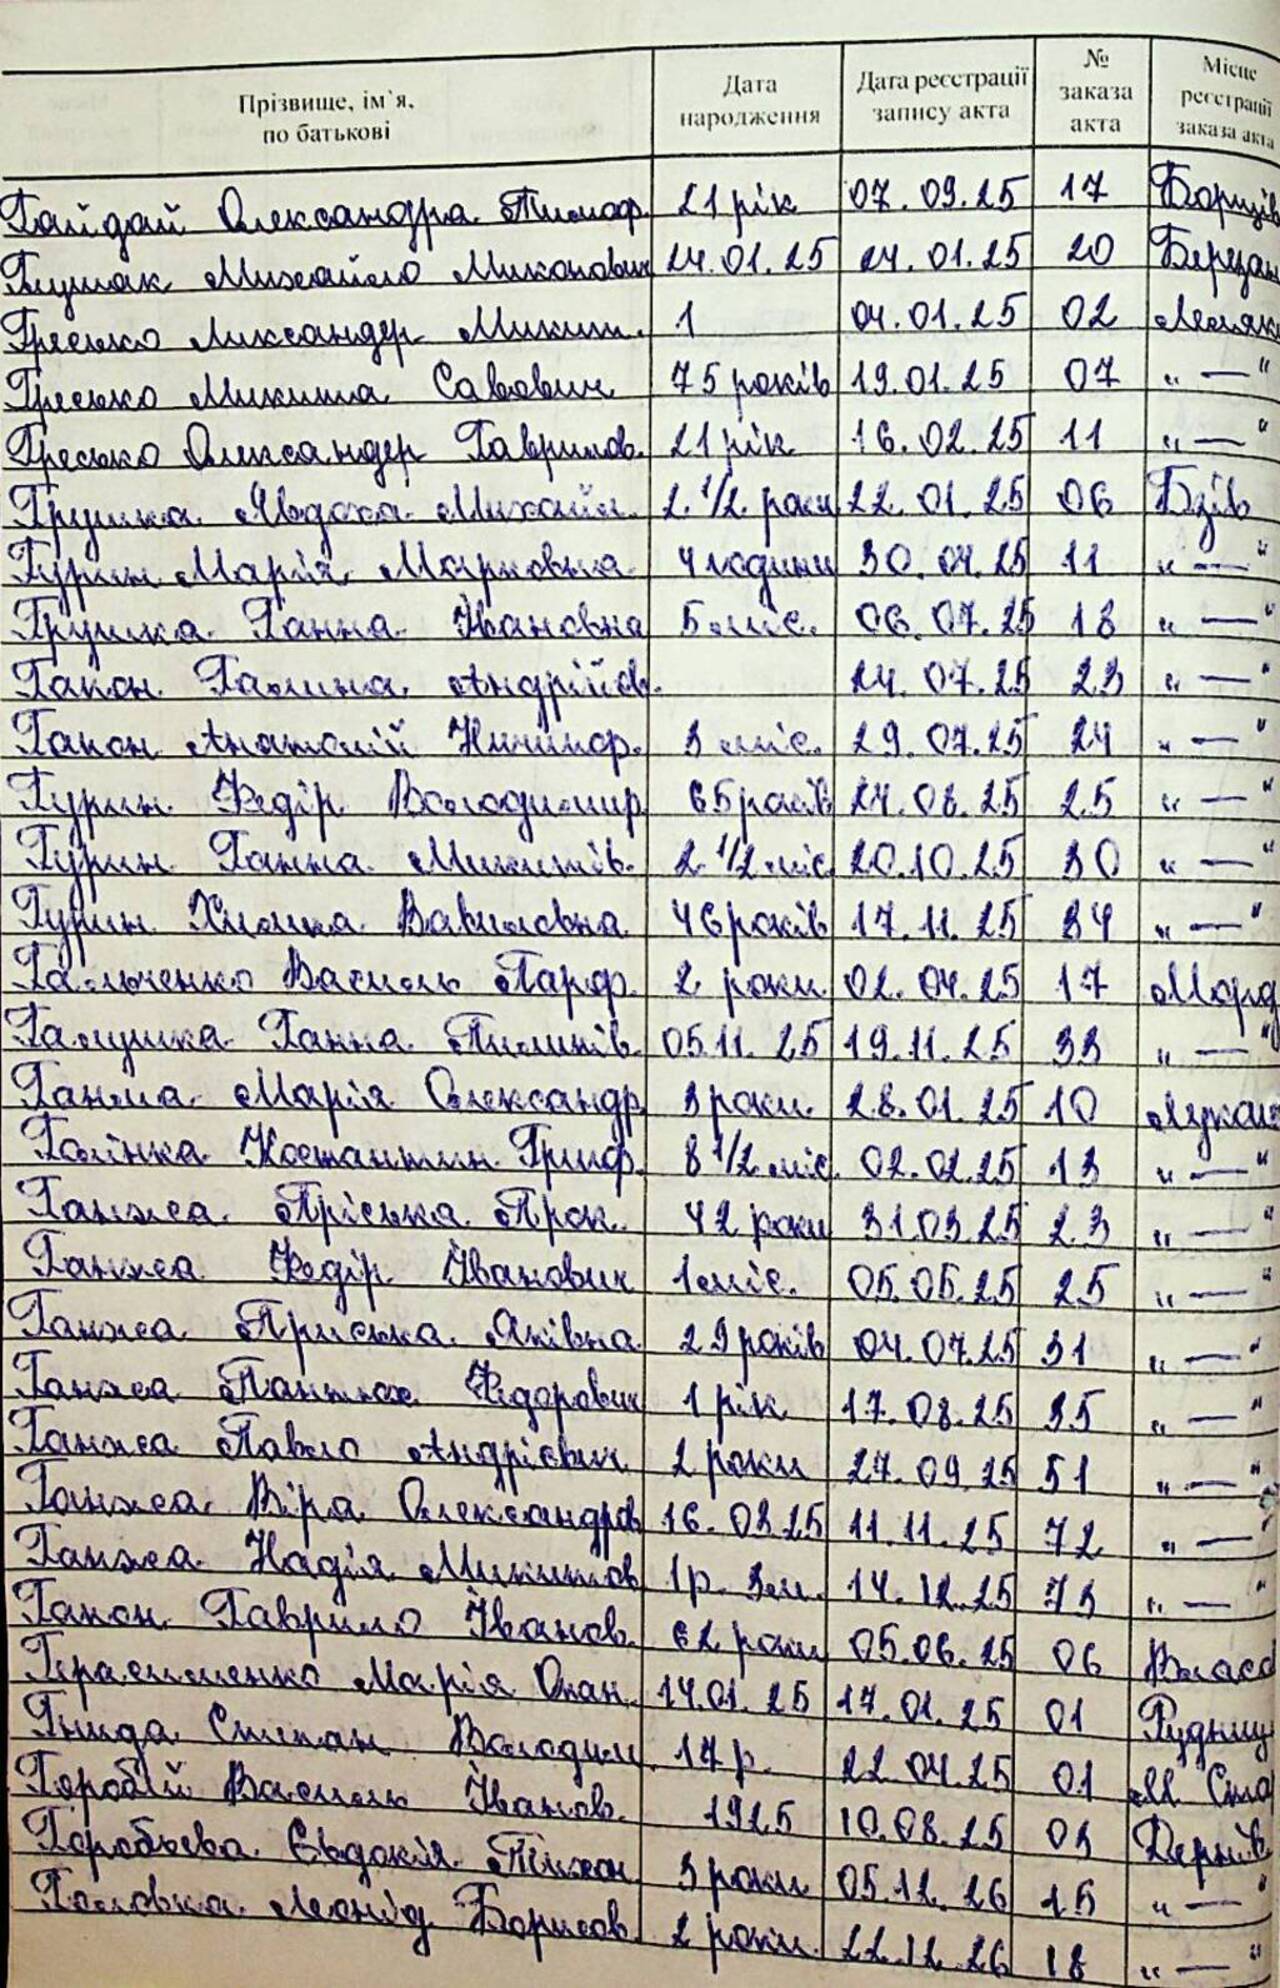 Прізвище, ім`я, по батькові Дата народження Дата реєстрації запису акта № заказа акта Місце реєстрації заказа акта
Гайдай Олександра Тимоф. 21 рік 07.09.25 17 Борщів
Глушак Михайло Миконович 24.01.25 24.01.25 20 Березан
Гресько Олександер Микит. 1 04.01.25 02 Лемяк
Гресько Микита Савович 75 років 19.01.25 07 „—“
Гресько Олександер Гаврилов. 21 рік 16.02.25 11 „—“
Грушка Явдоха Михайл. 2 1/2 роки 22.01.25 06 Бзів
Гурин Марія Марковна 4 години 30.04.25 11 „—“
Грушка Ганна Івановна 5 міс. 06.07.25 18 „—“
Гапон Галина Андрійов. 24.07.25 23 „—“
Гапон Анатолій Ничипор. 3 міс. 29.07.25 24 „—“
Гурин Федір Володимир. 65 років 24.08.25 25 „—“
Гурин Ганна Микитів. 2 1/2 міс. 20.10.25 30 „—“
Гурин Химка Вавиловна 46 років 17.11.25 34 „—“
Гальченко Василь Парф. 2 роки 02.04.25 17 Морд
Галушка Ганна Пилипів. 05.11.25 19.11.25 33 „—“
Ганжа Марія Олександр. 3 роки 28.01.25 10 Лукаш
Галінка Костантин Григ. 8 1/2 міс. 02.02.25 13 „—“
Ганжа Пріська Прок. 42 роки 31.03.25 23 „—“
Ганжа Федір Іванович 1 міс. 05.05.25 25 „—“
Ганжа Приська Яківна 29 років 04.07.25 31 „—“
Ганжа Пантнах Федорович 1 рік 17.08.25 35 „—“
Ганжа Павло Андрієвич 2 роки 27.09.25 51 „—“
Ганжа Віра Олександров 16.03.25 11.11.25 72 „—“
Ганжа Надія Микитов 1р. 3м. 14.12.25 73 „—“
Гапон Гаврило Іванов. 62 роки 05.06.25 06 Власо
Герасименко Марія Опан. 14.01.25 17.01.25 01 Рудниц
Гнида Степан Володим. 17 р. 22.04.25 01 М. Ста
Горобій Василь Іванов. 1925 10.08.25 03 Дернів
Горобьева Євдокія Тихон. 3 роки 05.12.26 15 „—“
Головка Леонід Борисов. 2 роки 22.12.26 18 „—“